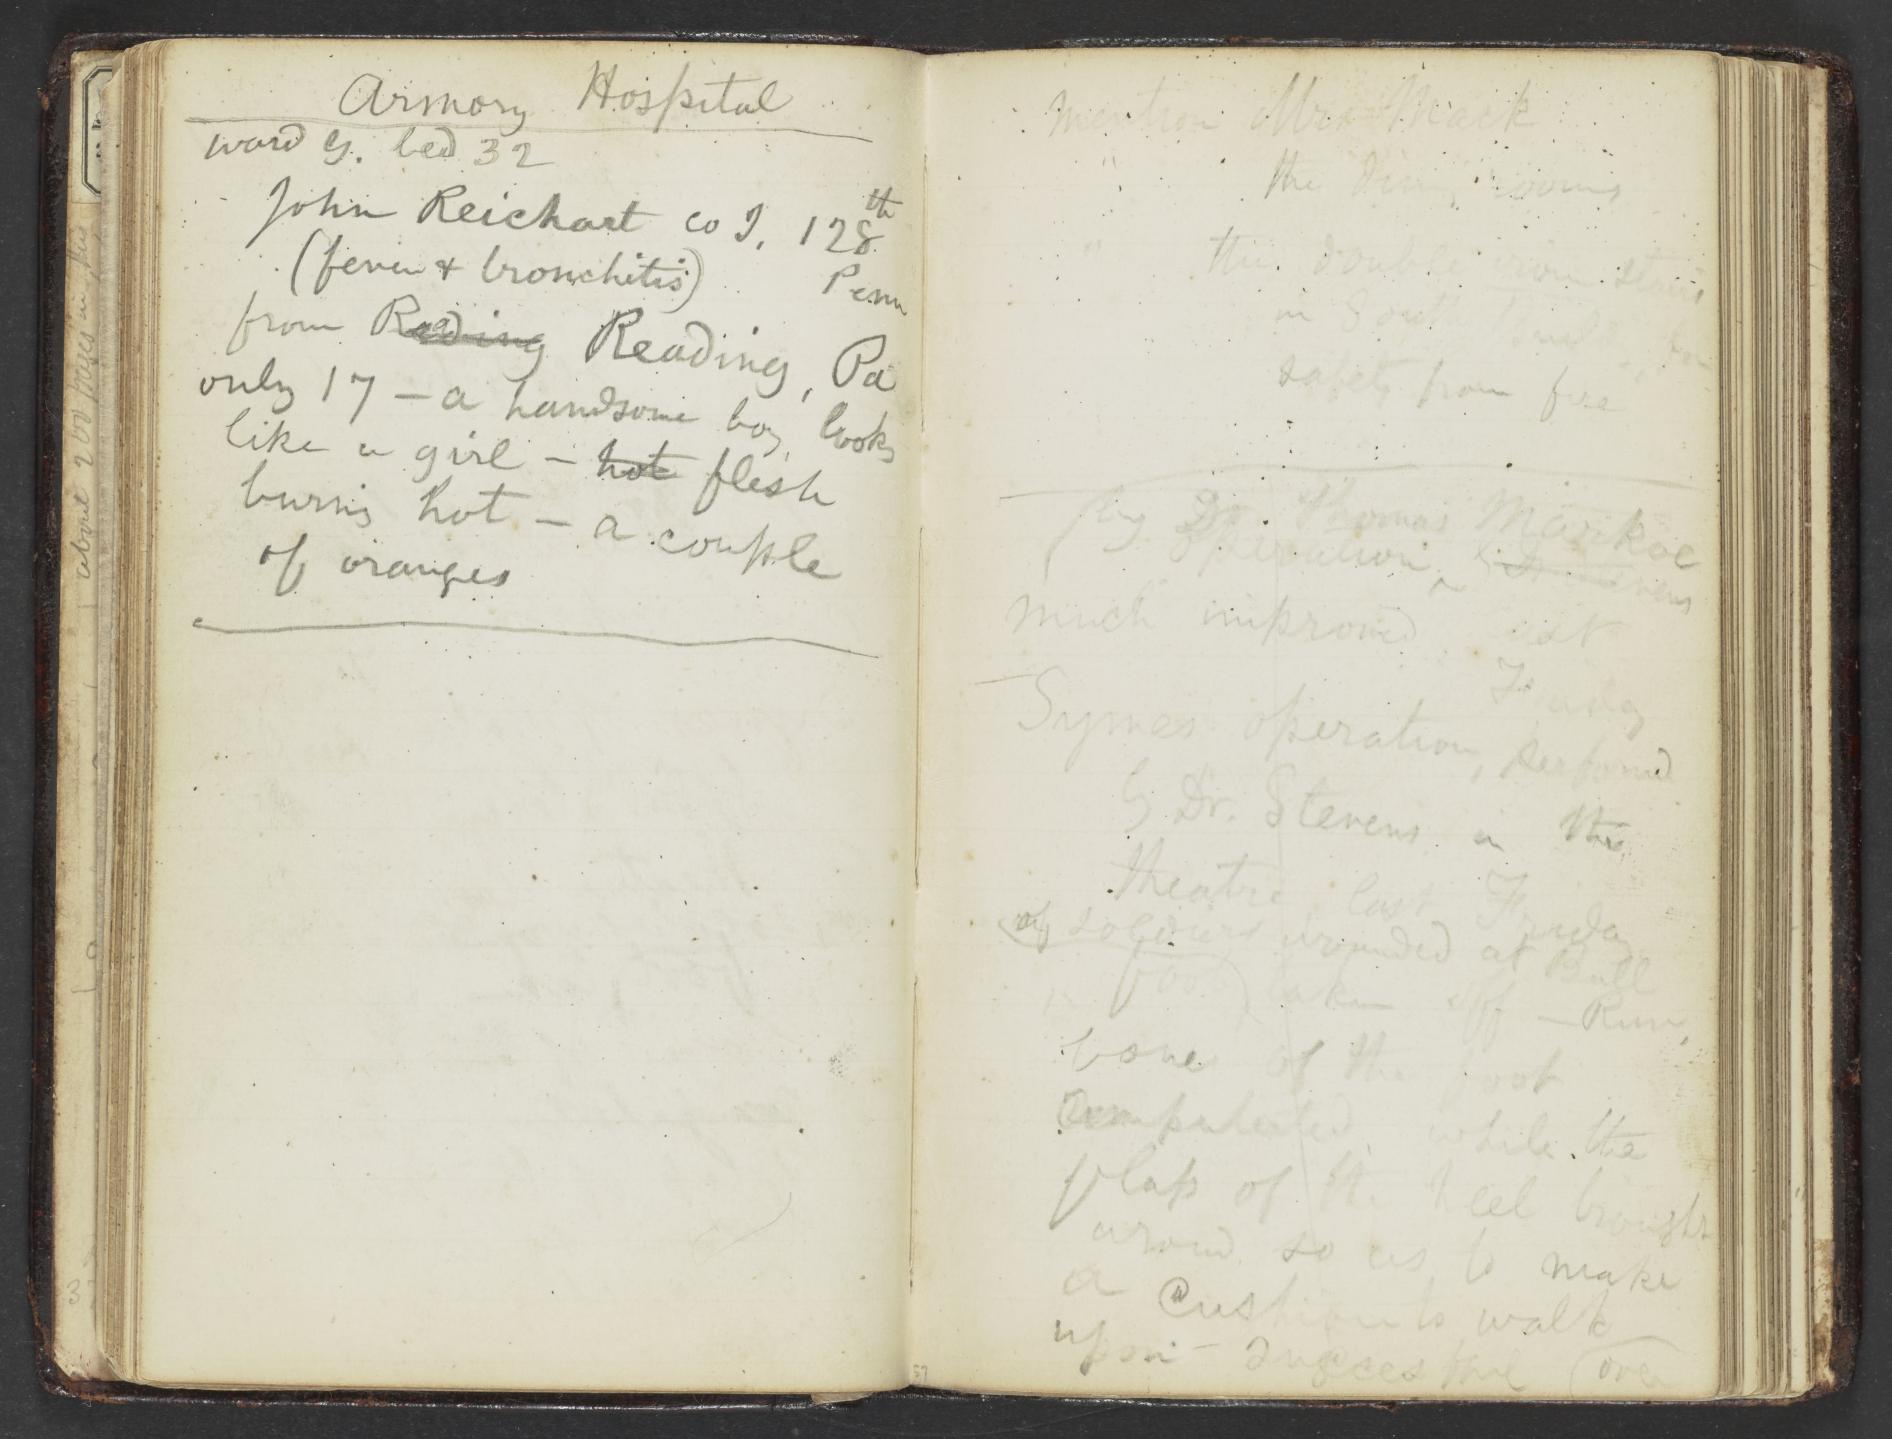 Armory Hospital
ward G. bed 32
John Reichart co I, 128th
(fever + bronchitis) Penn
from Reading Reading, Pa
only 17 – a handsome boy, looks
like a girl – hot flesh
burning hot – a couple
of oranges
mention Mrs Mack
" the dining rooms
" the double iron stairs
in South Build
safety from fire
by Dr. Thomas Markoe
operation, Stevens
much improved
Friday
Symes operation, performed
by Dr. Stevens in the
theatre last Friday
of soldiers wounded at Bull
foot) taken off – Run,
bone of the foot
amputated, while the
flap of the heel brought
around so as to make
a cushion to walk
upon – successful (over
about 200 pages in this
57